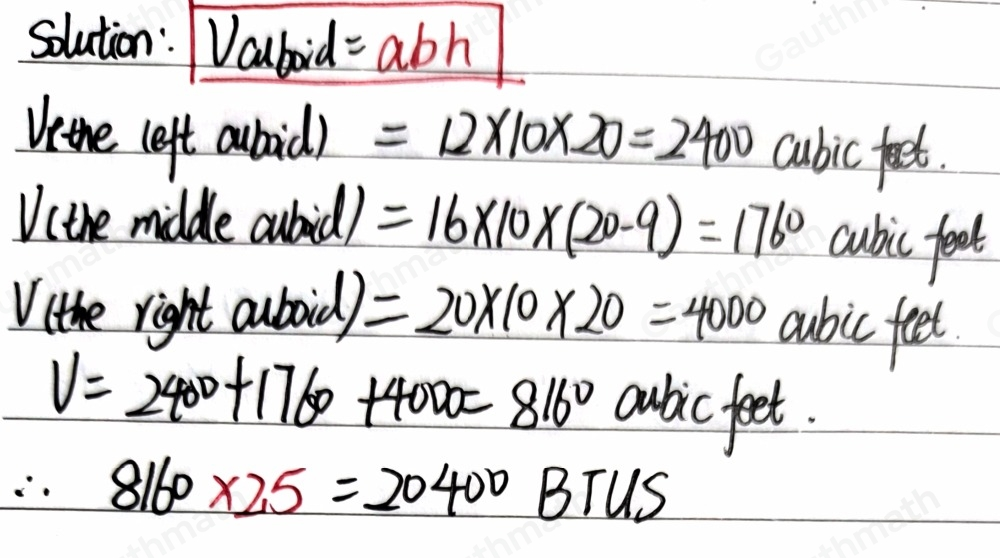 Solution: Vcuboid = abh
V(the left cuboid) = 12×10×20=2400 cubic feet.
V(the middle cuboid) = 16×10×(20-9) = 1760 cubic feet
V(the right cuboid) = 20×10×20 = 4000 cubic feet.
V= 2400+1760+4000= 8160 cubic feet.
∴ 8160 ×2.5 = 20400 BTUS